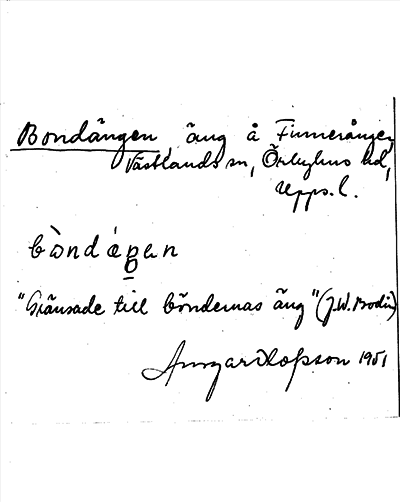 Bondängen, äng å Finnerånger,
Västlands sn, Örbyhus hd,
Upps. l.
bòndæŋen
"Gränsade till böndernas äng" (J.W. Bodin)
Olofsson 1951